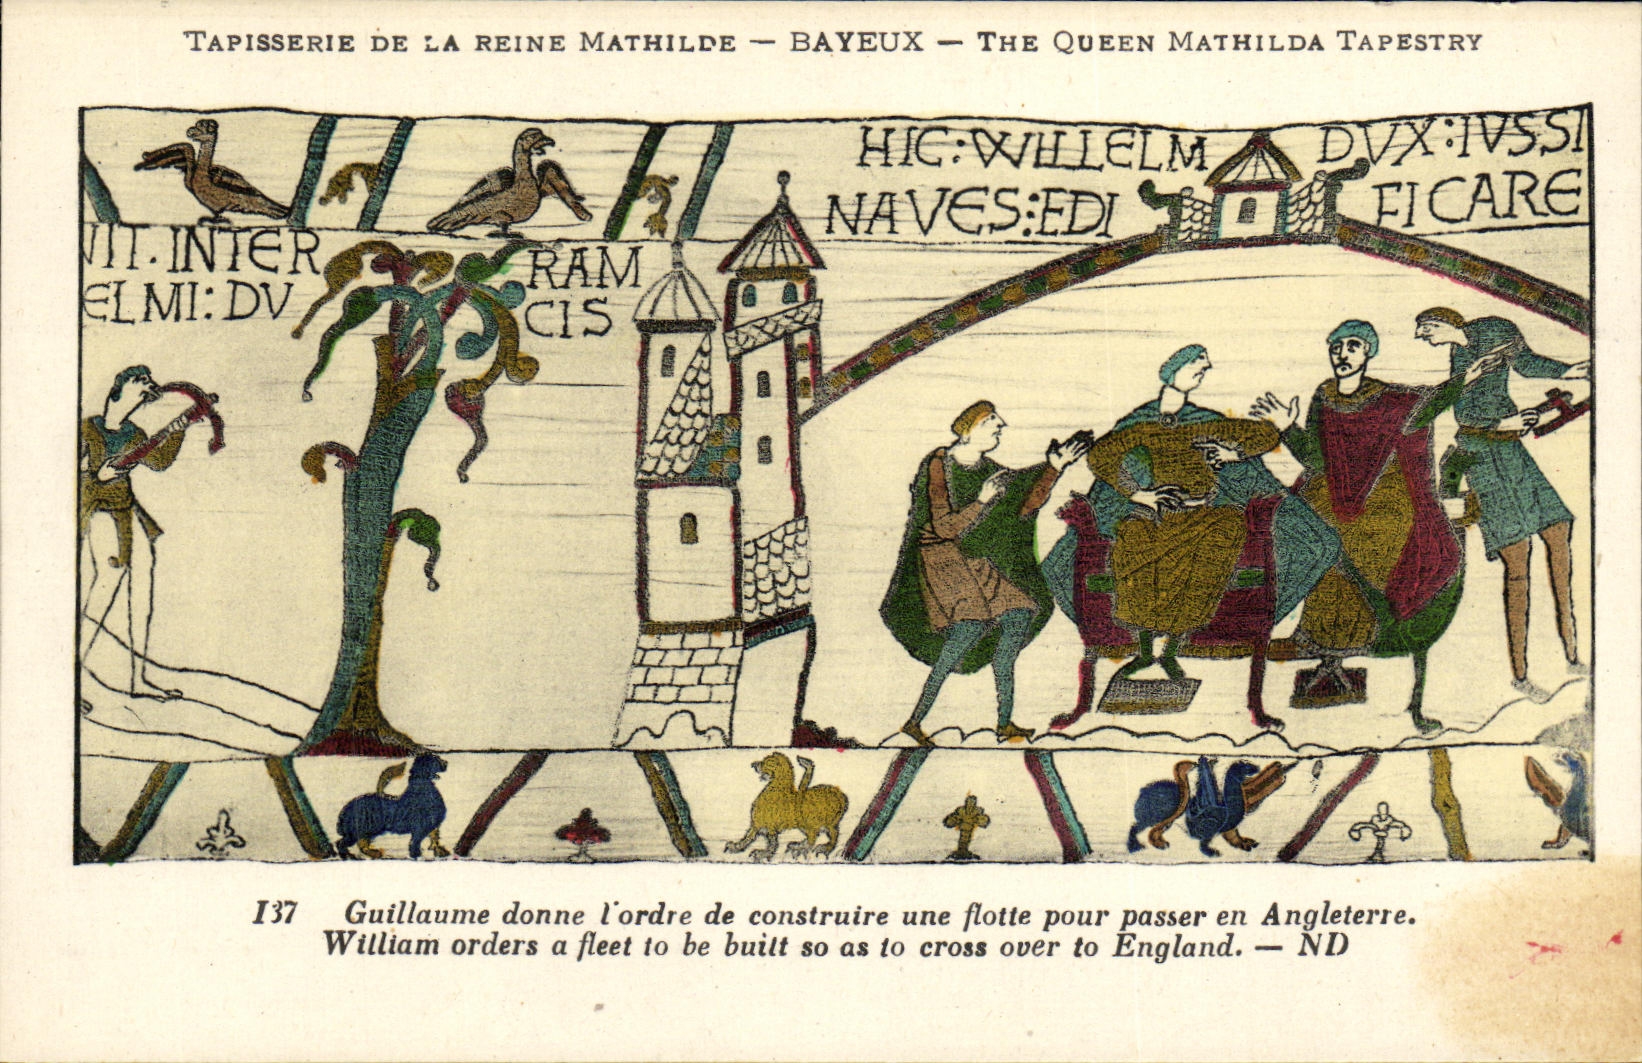 TAPISSERIE DE LA REINE MATHILDE — BAYEUX — THE QUEEN MATHILDA TAPESTRY
HIC : WILLELM DVX : IVSSI
NAVES : EDI FICARE
VIT . INTER RAM
ELMI : DV CIS
137 Guillaume donne l'ordre de construire une flotte pour passer en Angleterre.
William orders a fleet to be built so as to cross over to England. — ND